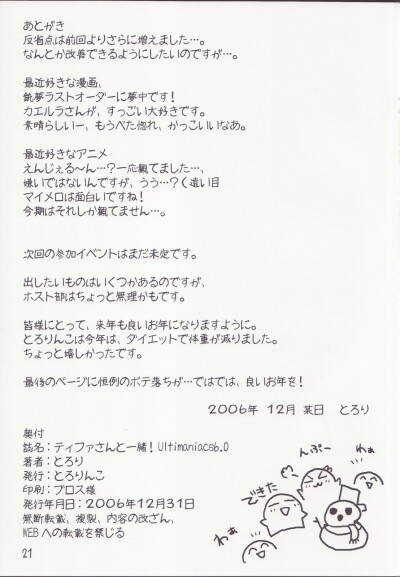 あとがき
反省点は前回よりさらに増えました…。
なんとか改善できるようにしたいのですが…。
最近好きな漫画、
銃夢ラストオーダーに夢中です!
カエルラさんが、すっごい大好きです。
素晴らしいー、もうべた惚れ、かっこいいなあ。
最近好きなアニメ
えんじぇる〜ん…?一応観てました…、
嫌いではないんですが、うう…?(遠い目
マイメロは面白いですね!
今期はそれしか観てません…。
次回の参加イベントはまだ未定です。
出したいものはいくつかあるのですが、
ホスト部はちょっと無理かもです。
皆様にとって、来年も良いお年になりますように。
とろりんこは今年は、ダイエットで体重が減りました。
ちょっと嬉しかったです。
最後のページに恒例のボテ落ちが…ではでは、良いお年を!
2006年 12月 某日 とろり
奥付
誌名:ティファさんと一緒!Ultimaniacs6.0
著者:とろり
発行:とろりんこ
印刷:プロス様
発行年月日:2006年12月31日
無断転載、複製、内容の改ざん、
WEBへの転載を禁じる
わぁ
んぷー
できた
わぁ
21